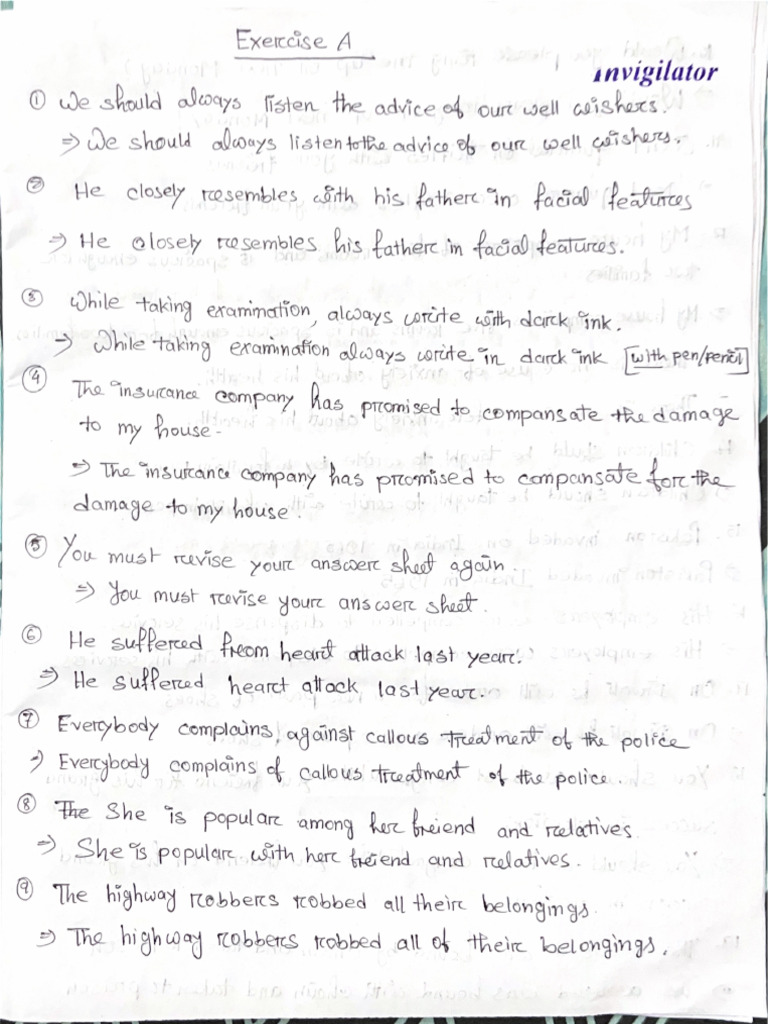 Exercise A
Invigilator
① We should always listen the advice of our well wishers.
⇒ We should always listen to the advice of our well wishers.
② He closely resembles with his father in facial features
⇒ He closely resembles his father in facial features.
③ While taking examination, always write with darck ink.
⇒ While taking examination always write in darck ink [with pen/pencil]
④ The insurance company has promised to compansate the damage
to my house.
⇒ The insurance company has promised to compansate for the
damage to my house.
⑤ You must revise your answer sheet again.
⇒ You must revise your answer sheet.
⑥ He suffered from heart attack last year.
⇒ He suffered heart attack last year.
⑦ Everybody complains against callous treatment of the police
⇒ Everybody complains of callous treatment of the police.
⑧ The She is popular among her freiend and relatives
⇒ She is popular with her freiend and relatives.
⑨ The highway robbers robbed all their belongings.
⇒ The highway robbers robbed all of their belongings.